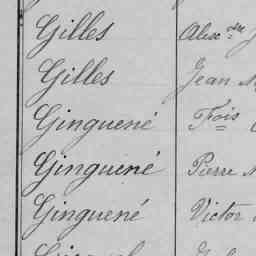 Gilles Alex.dre
Gilles Jean M
Ginguené Frois
Ginguené Pierre M
Ginguené Victor